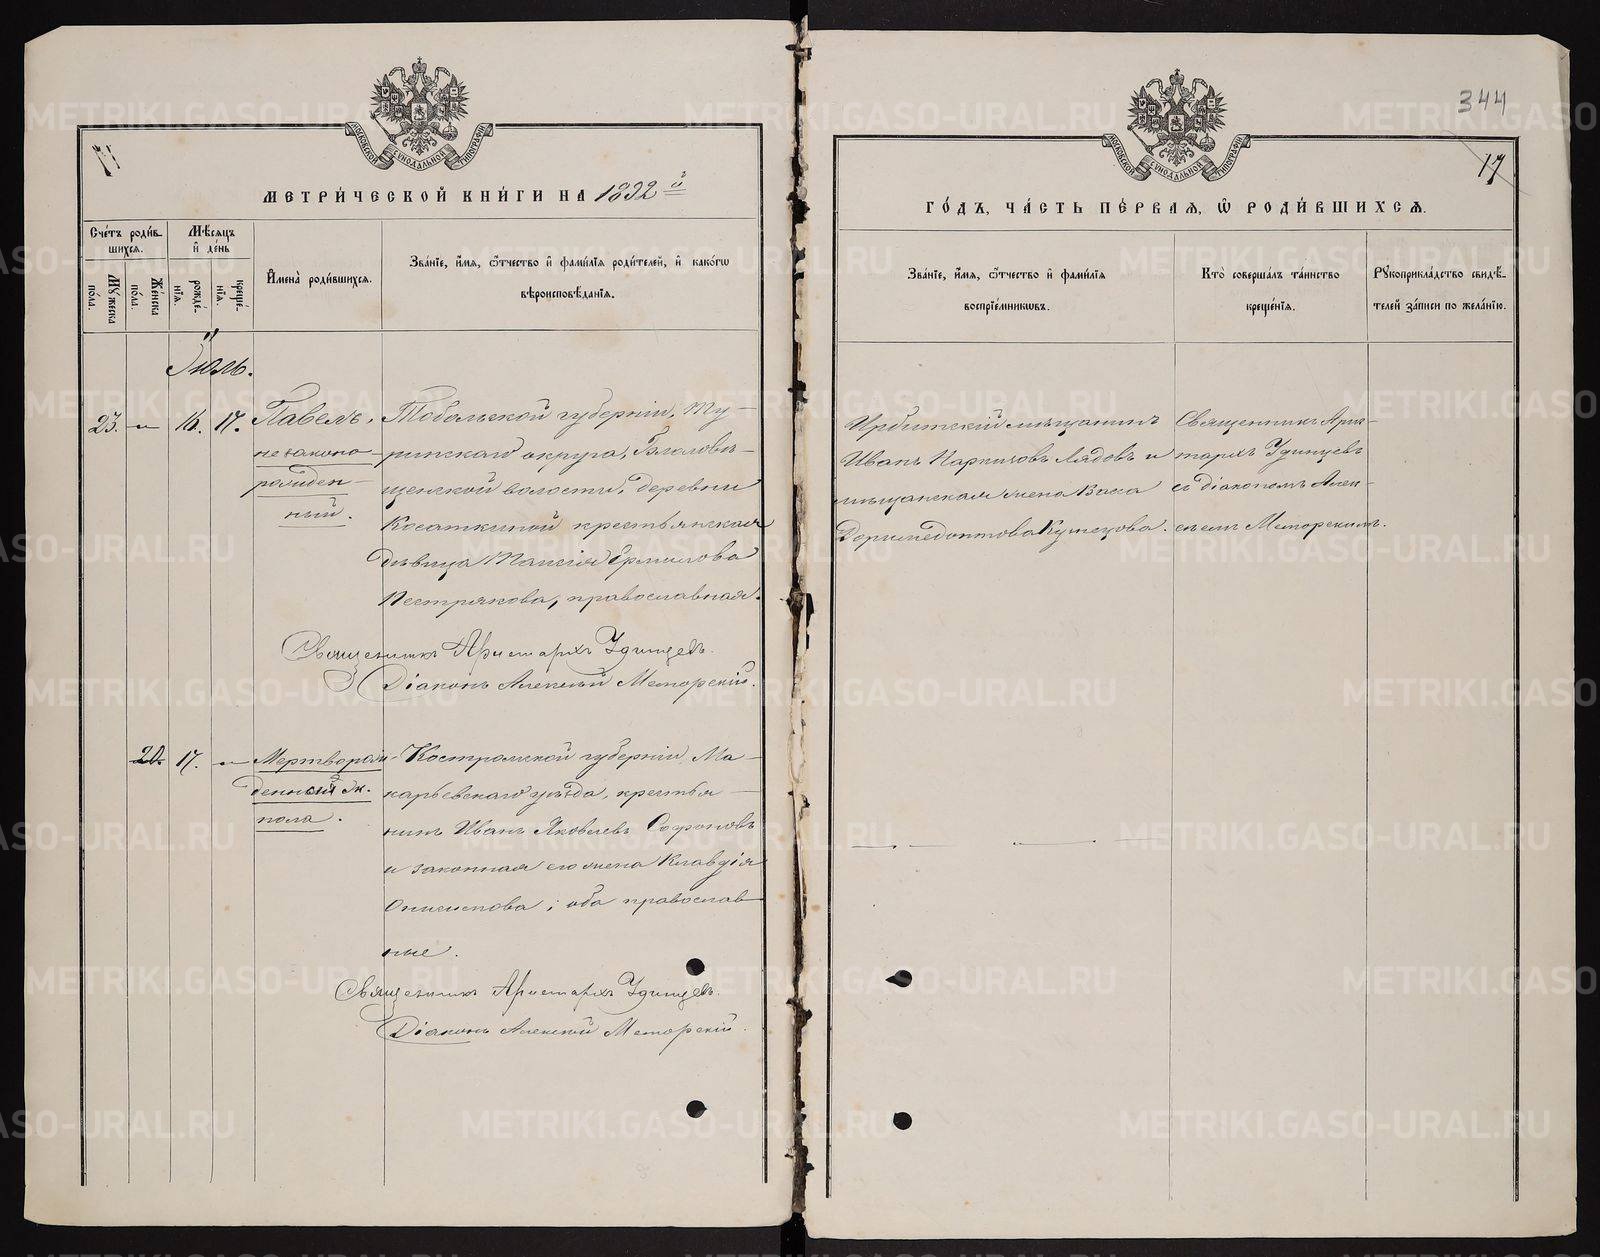 МОСКОВСКОЙ СѴНОДАЛЬНОЙ ТИПОГРАФІИ
МЕТРИ́ЧЕСКОЙ КНИ́ГИ НА 1892 й
Сче́тъ роди́вшихся.
Мѣ́сяцъ и҆ де́нь
Мꙋ́жеска по́ла.
Же́нска по́ла.
рожде́нїѧ.
креще́нїѧ.
И҆мена̀ роди́вшихсѧ.
Зва́нїе, и҆́мѧ, ѻ҆́тчество и҆ фами́лїѧ роди́телей, и҆ како́гѡ
вѣроисповѣ́данїѧ.
Іюль.
23. — 16. 17. Павелъ, незаконорожденный.
Тобольской губерніи, Ту-
ринскаго округа, Благовѣ-
щенской волости, деревни
Косаткиной крестьянская
дѣвица Таисія Ермилова
Пестрякова, православная.
Священникъ Аристархъ Удинцевъ.
Діаконъ Алексѣй Меморскій.
20. 17. — Мертворож-
денный ж.
пола.
Костромской губерніи, Ма-
карьевскаго уѣзда, крестья-
нинъ Иванъ Яковлевъ Софоновъ
и законная его жена Клавдія
Онисимова; оба православ-
ные.
Священникъ Аристархъ Удинцевъ.
Діаконъ Алексѣй Меморскій.
344
17
МОСКОВСКОЙ СѴНОДАЛЬНОЙ ТИПОГРАФІИ
ГО́ДЪ, ЧА́СТЬ ПЕ́РВАЯ, Ѡ҆ РОДИ́ВШИХСѦ.
Зва́нїе, и҆́мѧ, ѻ҆́тчество и҆ фами́лїѧ
воспрїе́мникѡвъ.
Кто̀ соверша́лъ та́инство
креще́нїѧ.
Рꙋкоприкла́дство свидѣ́-
телей за́писи по жела́нїю.
Ирбитскій мѣщанинъ
Иванъ Лядовъ и
мѣщанская жена Васса
Доримедонтова Кузнецова.
Священникъ Арис-
тархъ Удинцевъ
съ діакономъ Алек-
сѣемъ Меморскимъ.
METRIKI.GASO-URAL.RU